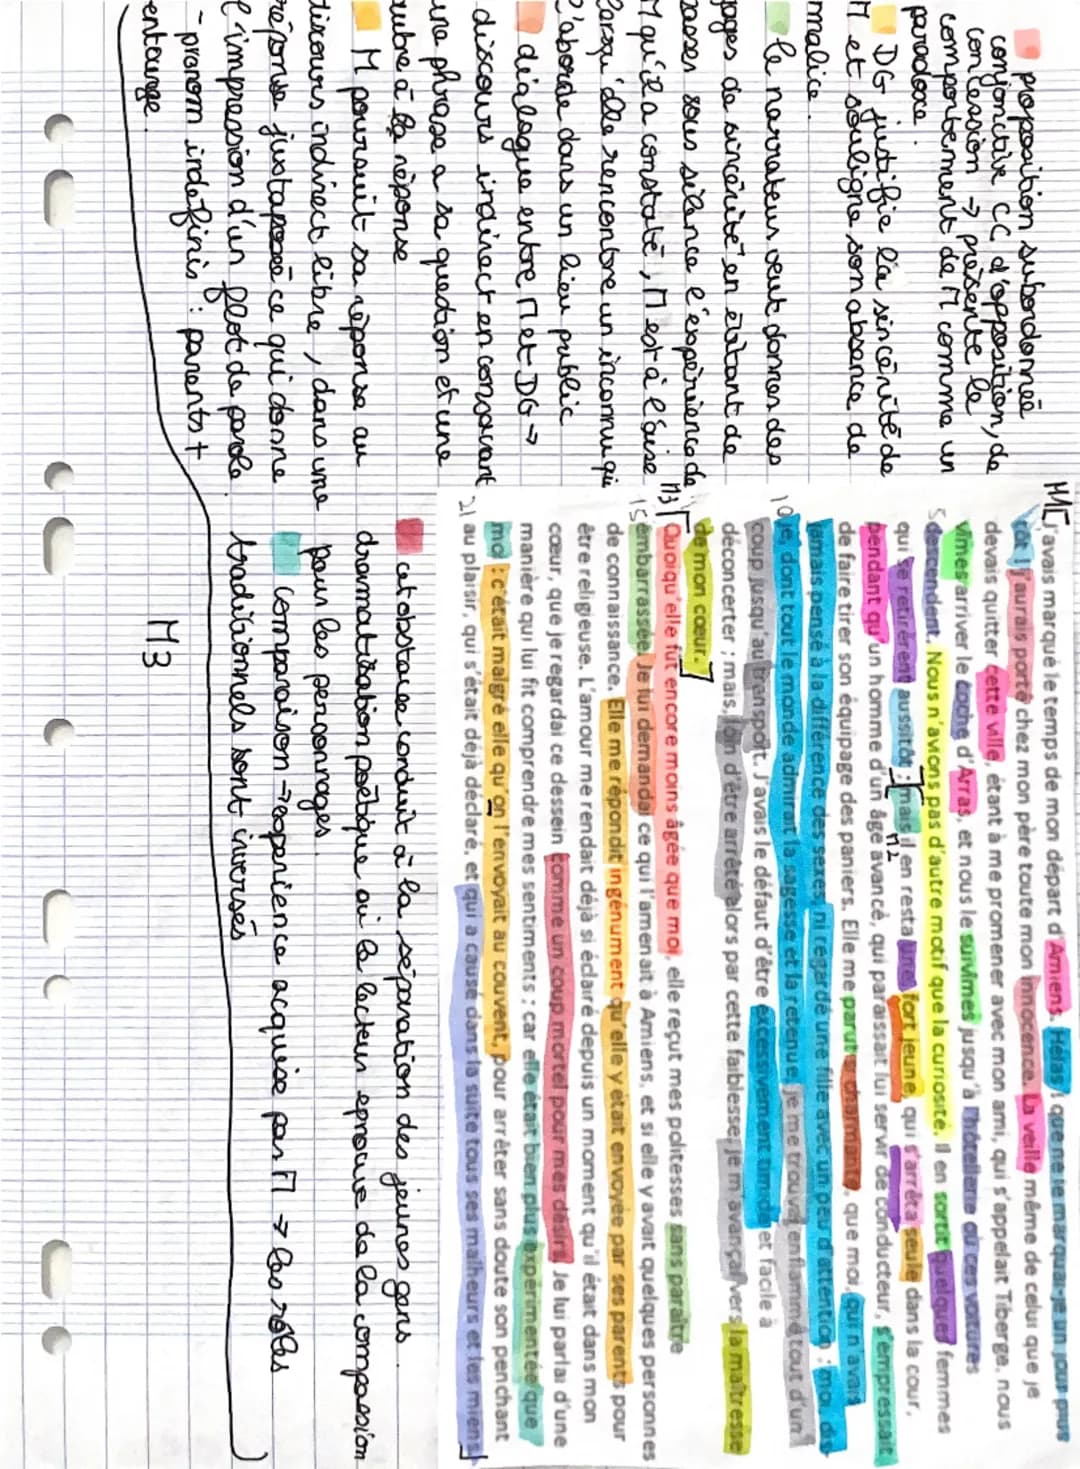 proposition subordonnée
conjonctive CC d'opposition, de
concession → présente le
comportement de M comme un
paradoxe.
DG justifie la sincérité de
M et souligne son absence de
malice.
le narrateur veut donner des
gages de sincérité en élatant de
sous silence l'expérience de
M qu'il a constaté, M est à l'aise
lorsqu'elle rencontre un inconnu qui
l'aborde dans un lieu public
dialogue entre M et DG →
discours indirect en consacrant
une phrase a sa question et une
autre à la réponse
M poursuit sa réponse au
discours indirect libre, dans une
réponse juxtaposé ce qui donne
l'impression d'un flot de parole.
- pronom indéfinis : parents +
entourage.
M1[J'avais marqué le temps de mon départ d'Amiens. Hélas ! que ne le marquais-je un jour plus
tôt ! j'aurais porté chez mon père toute mon innocence. La veille même de celui que je
devais quitter cette ville, étant à me promener avec mon ami, qui s'appelait Tiberge, nous
vîmes arriver le coche d'Arras, et nous le suivîmes jusqu'à l'hôtellerie où ces voitures
5 descendent. Nous n'avions pas d'autre motif que la curiosité. Il en sortit quelques femmes
qui se retirèrent aussitôt ;] [mais il en resta une, fort jeune, qui s'arrêta seule dans la cour,
M2
pendant qu'un homme d'un âge avancé, qui paraissait lui servir de conducteur, s'empressait
de faire tirer son équipage des paniers. Elle me parut si charmante, que moi, qui n'avais
jamais pensé à la différence des sexes, ni regardé une fille avec un peu d'attention ; moi, dis-
10 je, dont tout le monde admirait la sagesse et la retenue, je me trouvai enflammé tout d'un
coup jusqu'au transport. J'avais le défaut d'être excessivement timide et facile à
déconcerter ; mais, loin d'être arrêté alors par cette faiblesse, je m'avançai vers la maîtresse
de mon cœur.]
M3 [Quoiqu'elle fût encore moins âgée que moi, elle reçut mes politesses sans paraître
15 embarrassée. Je lui demandai ce qui l'amenait à Amiens, et si elle y avait quelques personnes
de connaissance. Elle me répondit ingénument qu'elle y était envoyée par ses parents pour
être religieuse. L'amour me rendait déjà si éclairé depuis un moment qu'il était dans mon
cœur, que je regardai ce dessein comme un coup mortel pour mes désirs. Je lui parlai d'une
manière qui lui fit comprendre mes sentiments ; car elle était bien plus expérimentée que
moi : c'était malgré elle qu'on l'envoyait au couvent, pour arrêter sans doute son penchant
21 au plaisir, qui s'était déjà déclaré, et qui a causé dans la suite tous ses malheurs et les miens.]
cet obstacle conduit à la séparation des jeunes gens.
dramatisation poétique où le lecteur eprouve de la compassion
pour les personnages.
comparaison → expérience acquise par M → les rôles
traditionnels sont inversés
M3